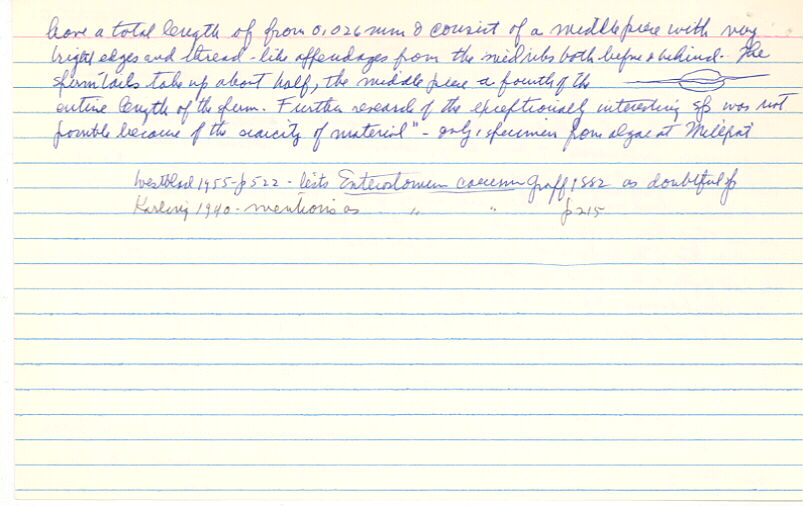 have a total length of from 0,026 mm & consist of a middle piece with very
bright edges and thread-like appendages from the midribs both before & behind. The
sperm tails take up about half, the middle piece a fourth of the
entire length of the sperm. Further research of the exceptionally interesting sp was not
possible because of the scarcity of material" - only 1 specimen from algae at Millport
Westblad 1955 - p 522 - lists Enterostomum coecum Graff 1882 as doubtful sp
Karling 1940 - mentions as " " p 215